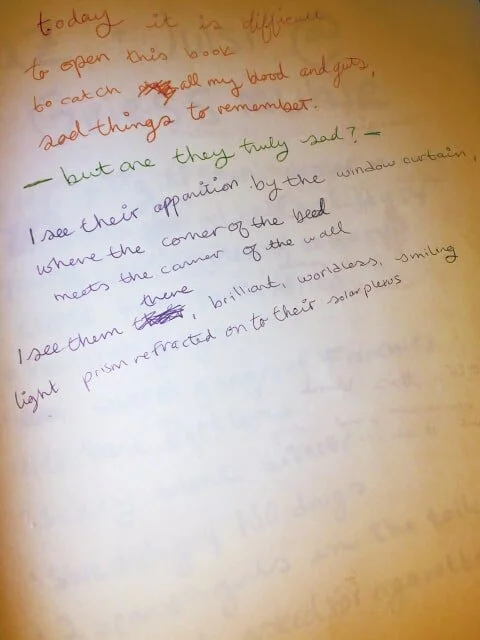 today it is difficult
to open this book
to catch all my blood and guts,
sad things to remember.
— but are they truly sad? —
I see their apparition by the window curtain,
where the corner of the bed
meets the corner of the wall
I see them there, brilliant, wordless, smiling
light prism refracted on to their solar plexus